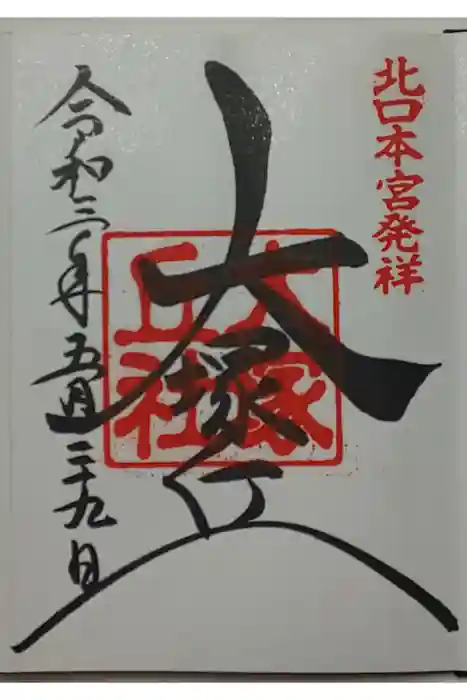 北口本宮発祥
大塚丘
大塚
丘社
令和三年五月二十九日